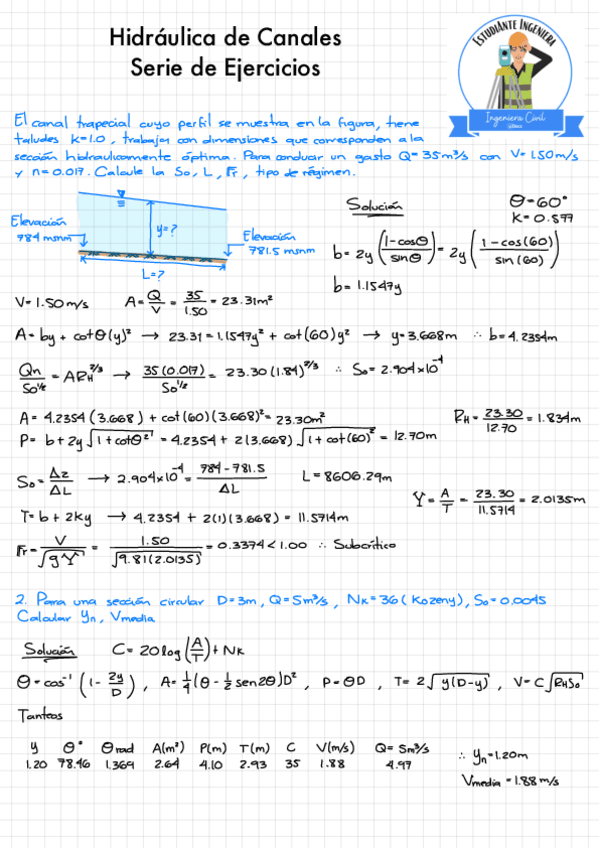 Hidráulica de Canales
Serie de Ejercicios
EStudiAnte IngenierA
Ingeniería Civil
El canal trapecial cuyo perfil se muestra en la figura, tiene
taludes K=1.0, trabaja con dimensiones que corresponden a la
sección hidraulicamente óptima. Para conducir un gasto Q=35m³/s con V=1.50m/s
y n=0.017. Calcule la So, L, Fr, tipo de régimen.
Elevación
784 msnm
y=?
L=?
Elevación
781.5 msnm
Solución
θ=60°
K=0.577
b=2y((1-cosθ)/sinθ)=2y((1-cos(60))/sin(60))
b=1.1547y
V=1.50m/s A=Q/V=35/1.50=23.31m²
A=by+cotθ(y)² → 23.31=1.1547y²+cot(60)y² → y=3.668m ∴ b=4.2354m
Qn/So^½=ARH^⅔ → 35(0.017)/So^½=23.30(1.84)^⅔ ∴ So=2.904x10⁻⁴
A=4.2354(3.668)+cot(60)(3.668)²=23.30m²
RH=23.30/12.70=1.834m
P=b+2y√(1+cotθ²)=4.2354+2(3.668)√(1+cot(60)²)=12.70m
So=Δz/ΔL → 2.904x10⁻⁴=(784-781.5)/ΔL L=8606.29m
Y=A/T=23.30/11.5714=2.0135m
T=b+2Ky → 4.2354+2(1)(3.668)=11.5714m
Fr=V/√(gY)=1.50/√(9.81(2.0135))=0.3374<1.00 ∴ Subcrítico
2. Para una sección circular D=3m, Q=5m³/s, NK=36(Kozeny), So=0.0045
Calcular yn, Vmedia
Solución C=20log(A/T)+NK
θ=cos⁻¹(1-2y/D), A=¼(θ-½sen2θ)D², P=θD, T=2√(y(D-y)), V=C√(RHSo)
Tanteos
y θ° θrad A(m²) P(m) T(m) C V(m/s) Q=5m³/s
1.20 78.46 1.369 2.64 4.10 2.93 35 1.88 4.97
∴ yn=1.20m
Vmedia=1.88m/s